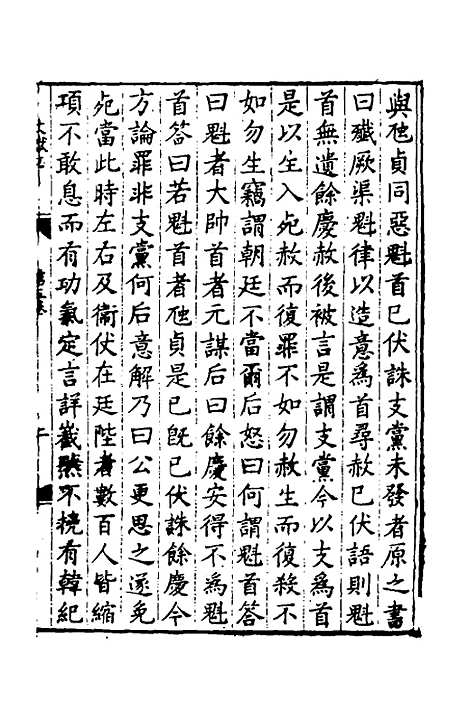 與虺貞同惡魁首已伏誅支黨未發者原之書
曰殲厥渠魁律以造意爲首尋赦已伏語則魁
首無遺餘慶赦後被言是謂支黨今以支爲首
是以生入死赦而復罪不如勿赦生而復殺不
如勿生竊謂朝廷不當爾后怒曰何謂魁首答
曰魁者大帥首者元謀后曰餘慶安得不爲魁
首答曰若魁首者虺貞是已旣已伏誅餘慶今
方論罪非支黨何后意解乃曰公更思之遂免
死當此時左右及衞仗在廷陛者數百人皆縮
項不敢息而有功氣定言詳截然不橈有韓紀